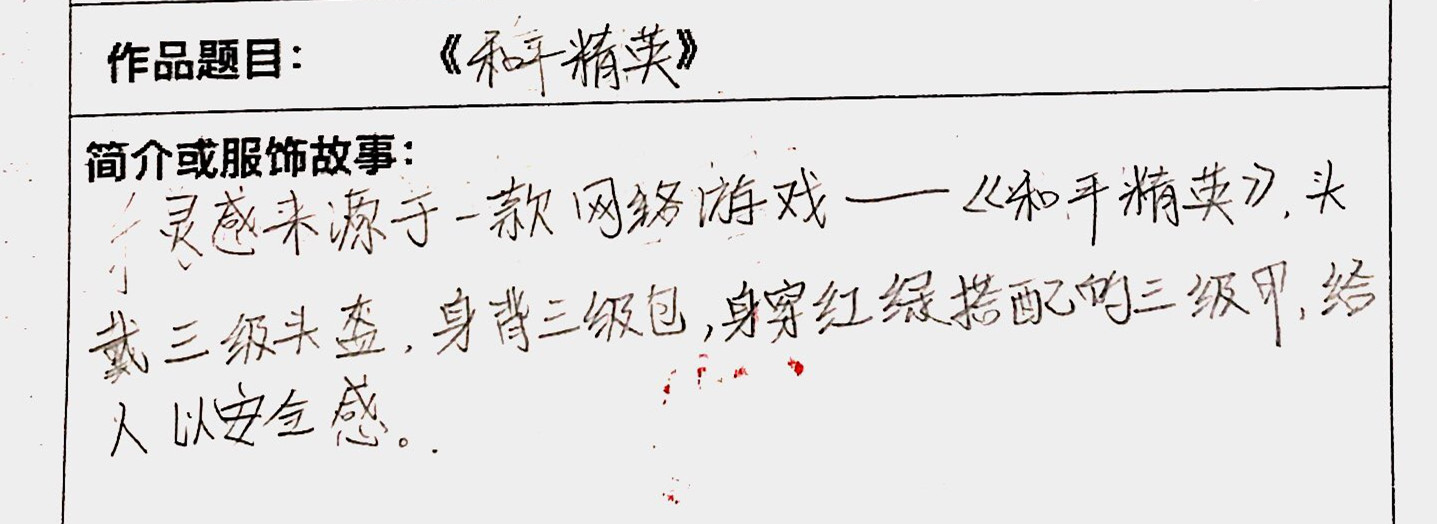 作品题目： 《和平精英》
简介或服饰故事：
灵感来源于一款网络游戏——《和平精英》，头
戴三级头盔，身背三级包，身穿红绿搭配的三级甲，给
人以安全感。